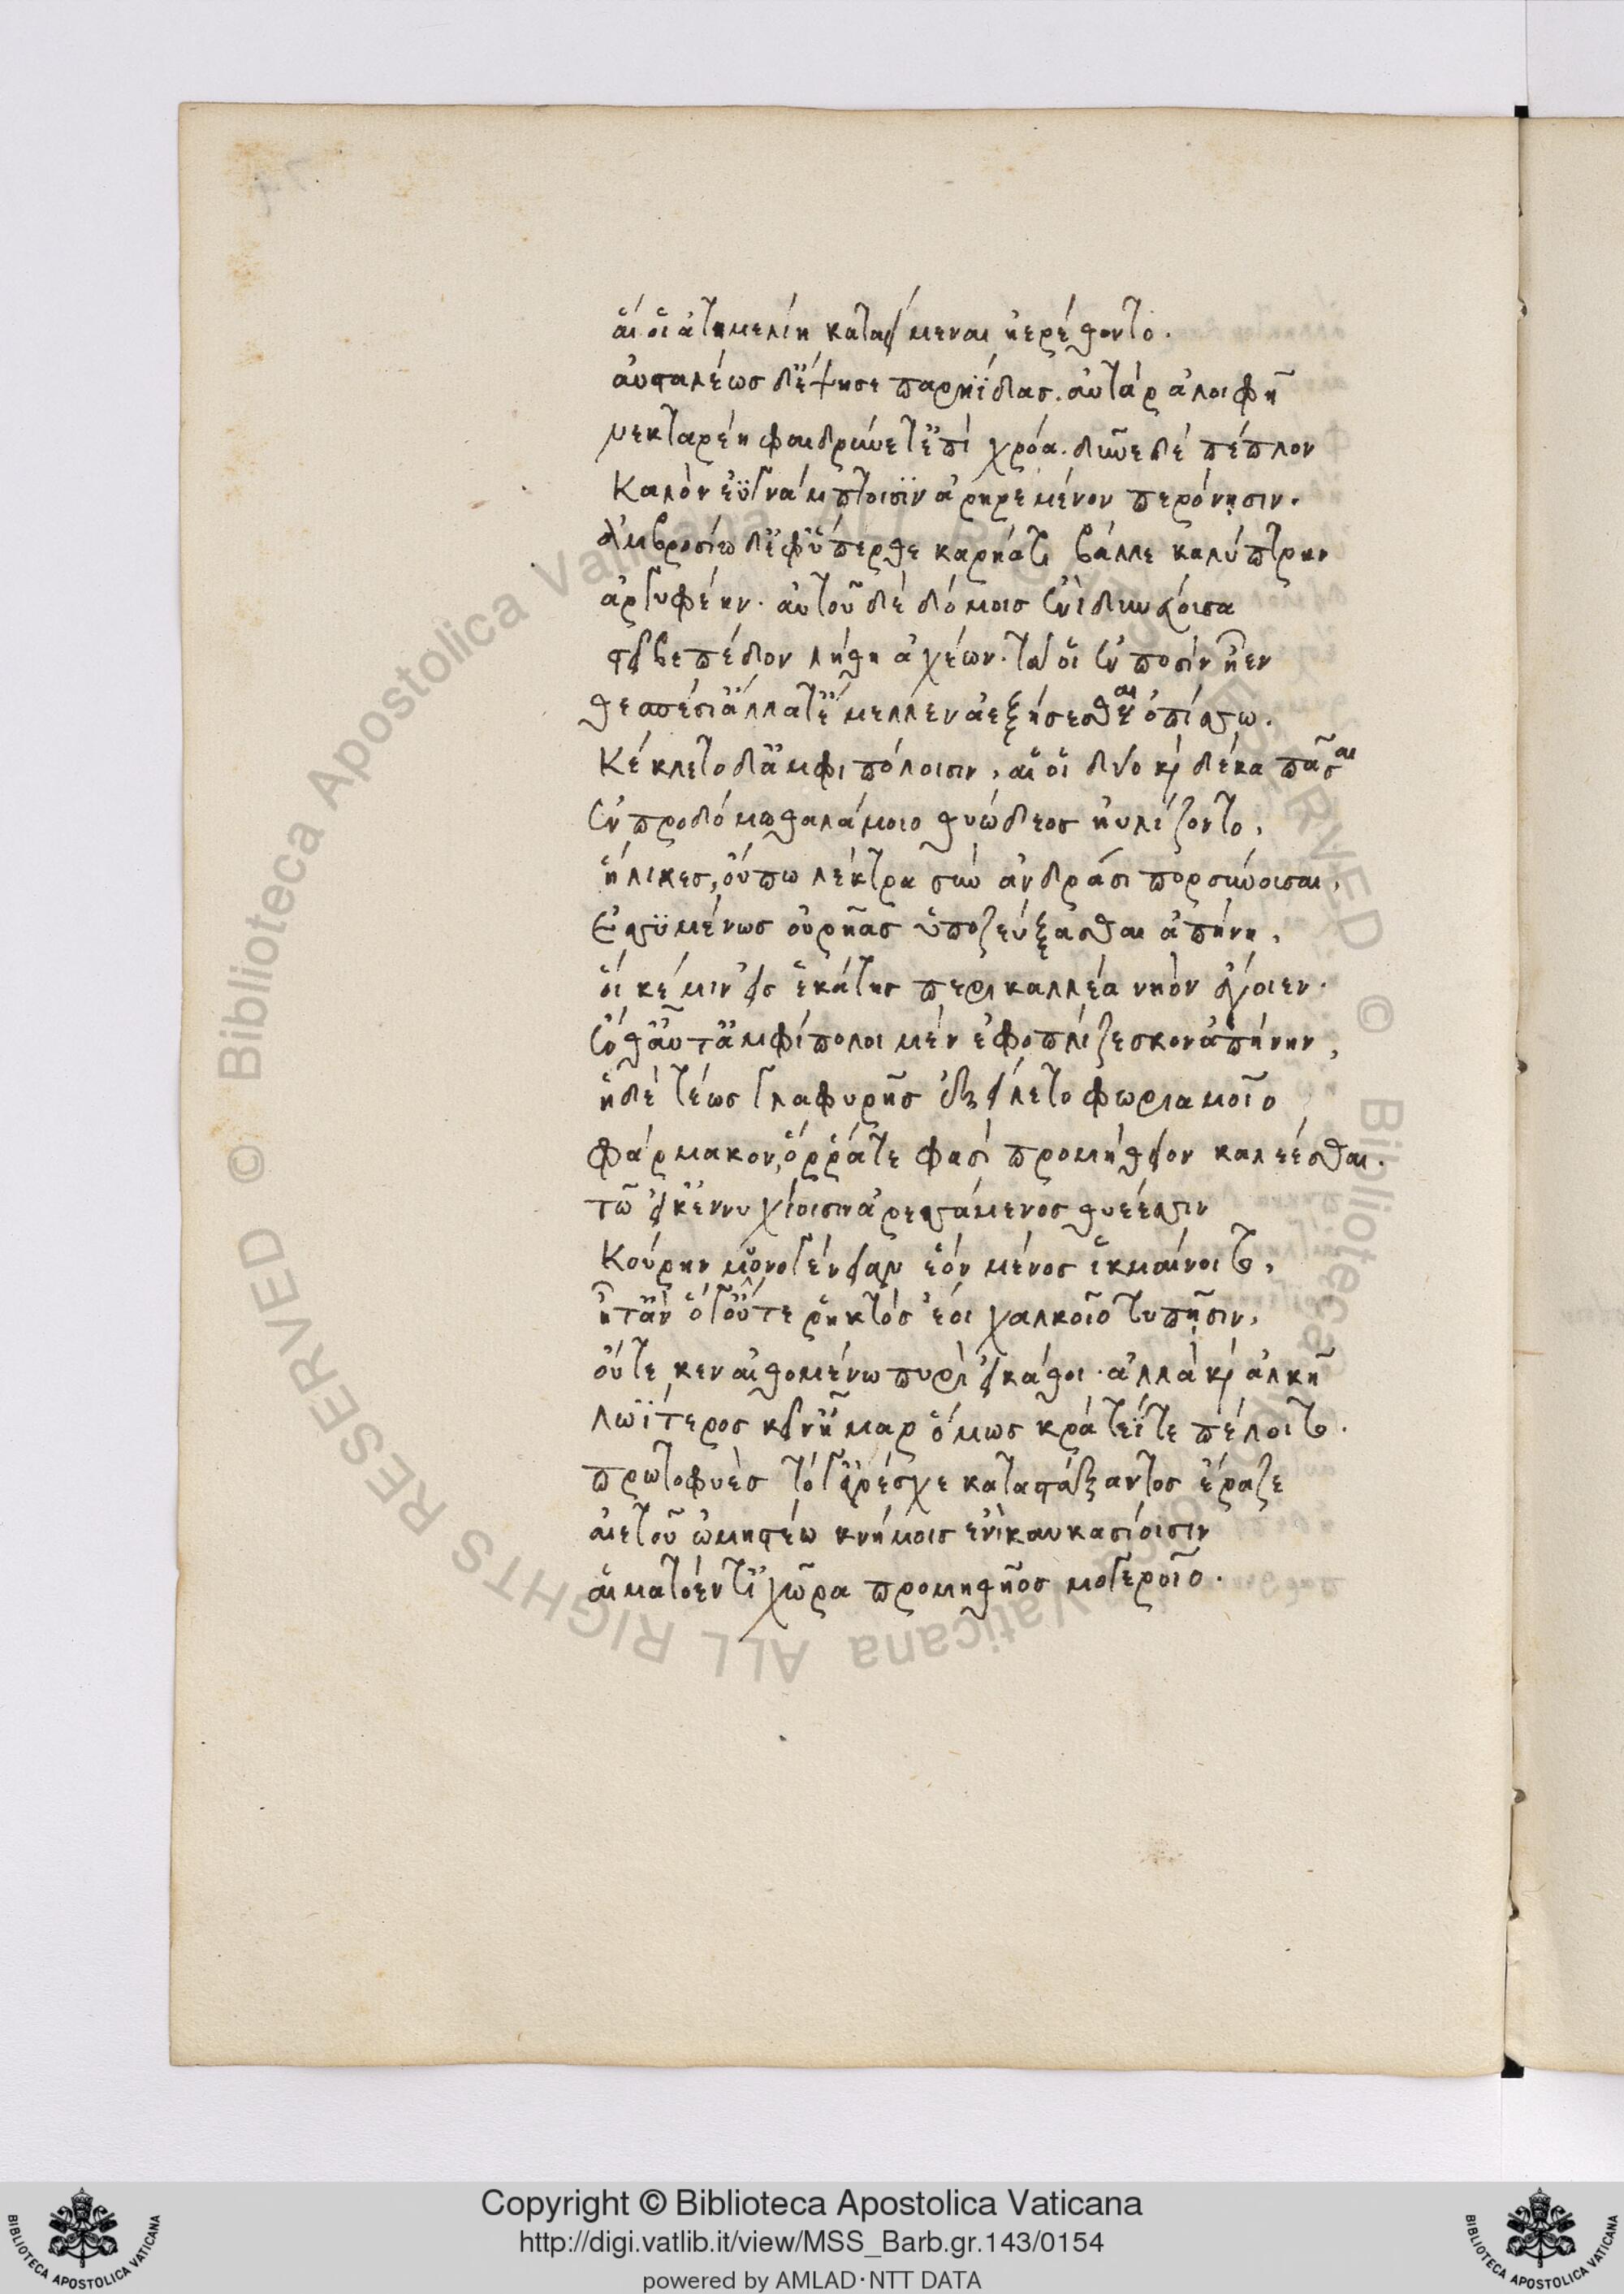 αἵ οἱ ἀτημελίη καταειμέναι ἠερέθοντο.
αὐσταλέως δ' ἔψησε παρηΐδας. αὐτὰρ ἀλοιφῆ
νεκταρέη φαιδρύνετ' ἐπὶ χρόα. δῦνε δὲ πέπλον
καλὸν ἐϋγνάμπτοισϊν ἀρηρεμένον περόνησιν.
ἀμβροσίω δ' ἐφ' ὕπερθε καρήατι βάλλε καλύπτρην
ἀργυφέην. αὐτοῦ δὲ δόμοις ἐνὶ δινεύουσα
στεῖβε πέδον λήθη ἀχέων. τά οἱ ἐν ποσὶν ἦεν
θεσπέσι' ἄλλα τ' ἔμελλεν ἀεξήσεσθαι ὀπίσσω.
Κέκλετο δ' ἀμφιπόλοισιν, αἵ οἱ δύο καὶ δέκα πᾶσαι
ἐν προδόμω θαλάμοιο θυώδεος ηὐλίζοντο,
ἥλικες, οὔπω λέκτρα σὺν ἀνδράσι πορσύνουσαι,
ἐσσϋμένως οὐρῆας ὑποζεύξασθαι ἀπήνη,
οἵ κέ μιν εἰς ἑκάτης περικαλλέα νηὸν ἄγοιεν.
ἔνθ' αὖτ' ἀμφίπολοι μὲν ἐφοπλίζεσκον ἀπήνην,
ἡ δὲ τέως γλαφυρῆς ἐξείλετο φωριαμοῖο
φάρμακον, ὅρρά τε φασὶ προμήθειον καλέεσθαι.
τῶ εἴ κ' ἐννυχίοισιν ἀρεσσάμενος θυέεσσιν
Κούρην μουνογένειαν ἑὸν μένος ἰκμαίνοιτο,
ἦτ' ἂν ὅγ' οὔτε ῥηκτὸς ἔοι χαλκοῖο τυπῆσιν,
οὔτε κεν αἰθομένω πυρὶ εἰκάθοι. ἀλλὰ καὶ ἀλκῆ
λωΐτερος κεῖν' ἦμαρ ὅμως κράτεΐ τε πέλοιτο.
πρωτοφυὲς τόγ' ἀνέσχε καταστάξαντος ἔραζε
αἰετοῦ ὠμηστέω κνήμοις ἐνὶ καυκασίοισιν
αἱματόεντ' ἰχῶρα προμηθῆος μογεροῖο.
Copyright © Biblioteca Apostolica Vaticana
http://digi.vatlib.it/view/MSS_Barb.gr.143/0154
powered by AMLAD·NTT DATA